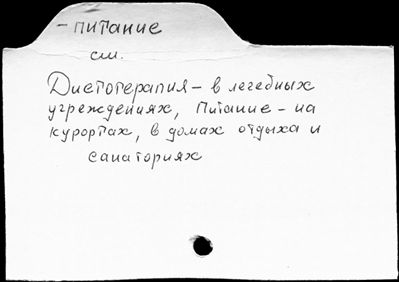 - питание
см.
Диетотерапия - в лечебных
учреждениях, Питание - на
курортах, в домах отдыха и
санаториях